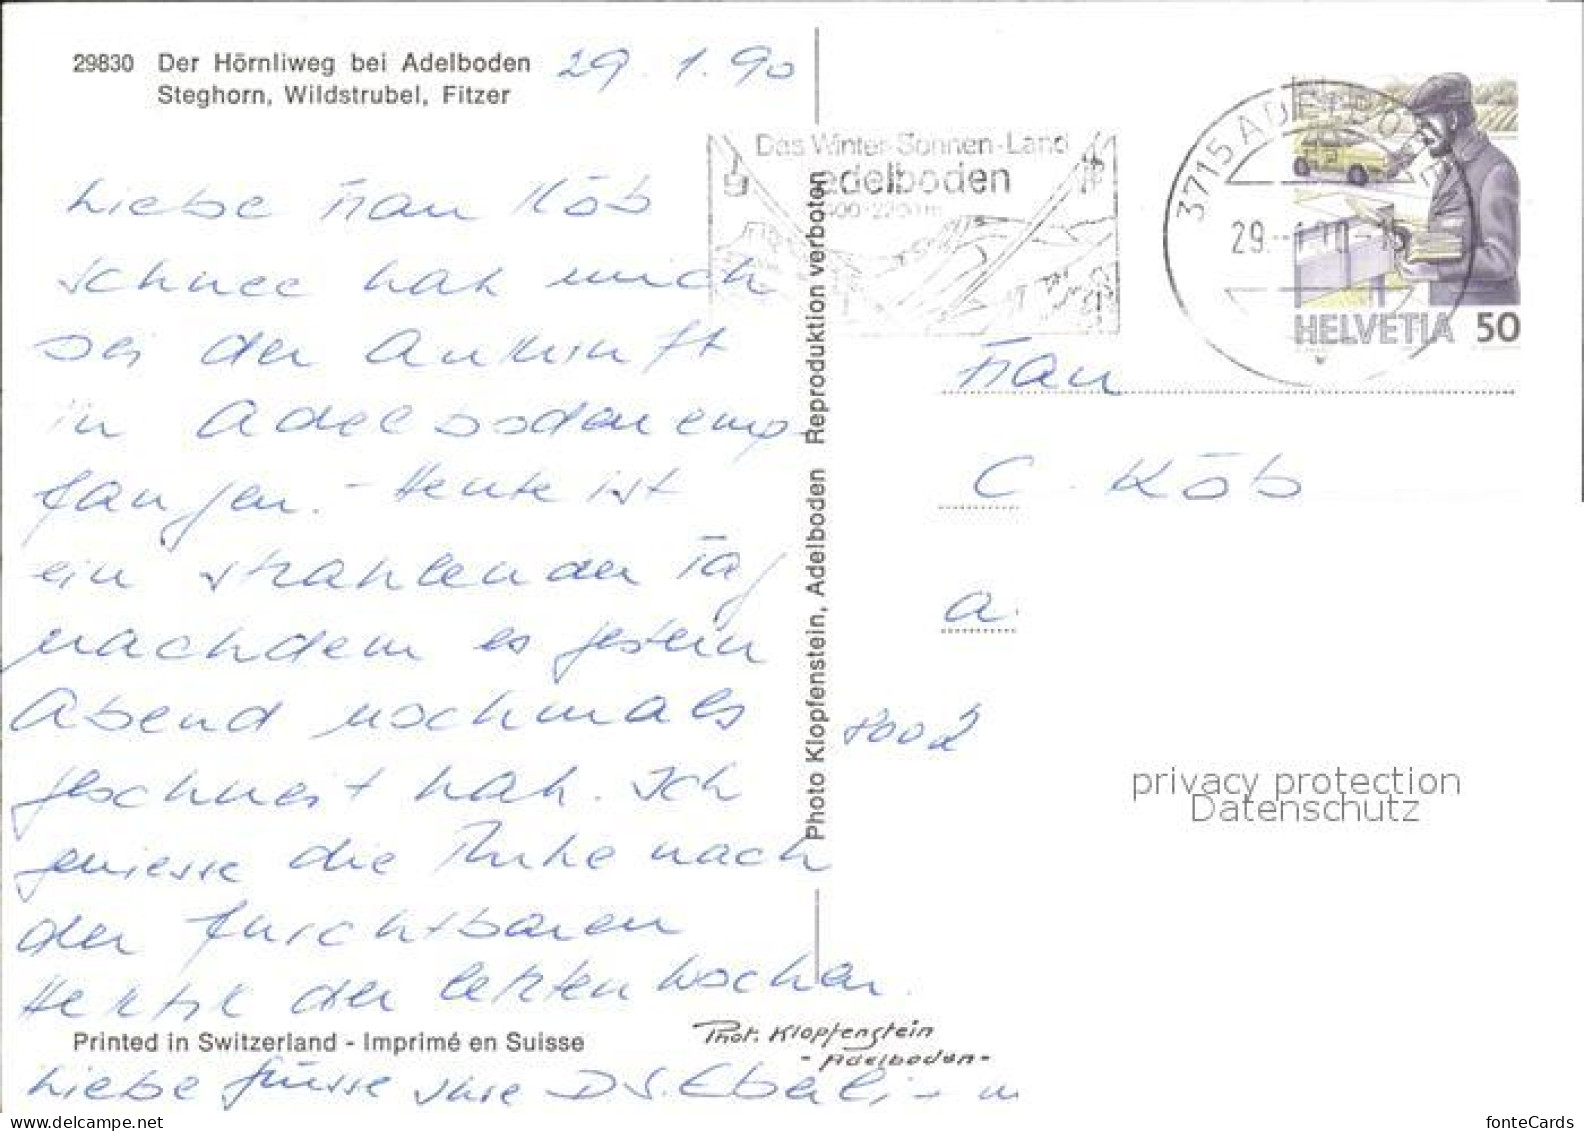 29830 Der Hörnliweg bei Adelboden
Steghorn, Wildstrubel, Fitzer
29.1.90
Liebe Frau Köb
Schnee hat mich
bei der Ankunft
in Adelboden emp-
fangen. - Heute ist
ein strahlender Tag
nachdem es gestern
Abend nochmals
geschneit hat. Ich
geniesse die Ruhe nach
der furchtbaren
Hektik der letzten Wochen.
Printed in Switzerland - Imprimé en Suisse
Liebe Grüsse Ihre
Phot. Klopfenstein
- Adelboden -
Photo Klopfenstein, Adelboden Reproduktion verboten
Das Winter-Sonnen-Land
adelboden
3715 ADELBODEN
29.-1.90-15
HELVETIA 50
Frau
C. Köb
a.
8002
privacy protection
Datenschutz
fonteCards
www.delcampe.net